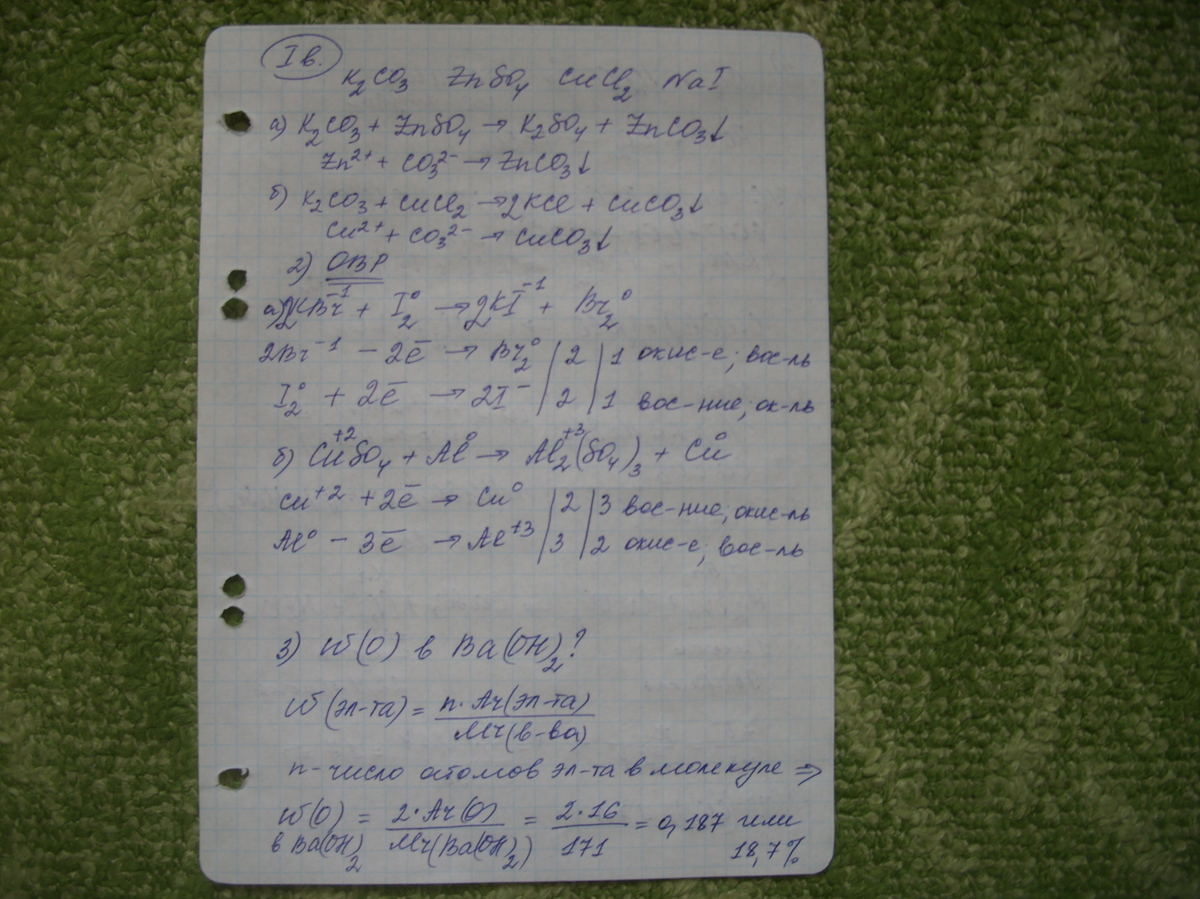 I в.
K₂CO₃ ZnSO₄ CuCl₂ NaI
а) K₂CO₃ + ZnSO₄ → K₂SO₄ + ZnCO₃↓
Zn²⁺ + CO₃²⁻ → ZnCO₃↓
б) K₂CO₃ + CuCl₂ → 2KCl + CuCO₃↓
Cu²⁺ + CO₃²⁻ → CuCO₃↓
2) ОВР
а) 2KBr⁻¹ + I₂⁰ → 2KI⁻¹ + Br₂⁰
2Br⁻¹ – 2ē → Br₂⁰ | 2 | 1 окис-е; вос-ль
I₂⁰ + 2ē → 2I⁻ | 2 | 1 вос-ние; ок-ль
б) Cu⁺²SO₄ + Al⁰ → Al₂⁺³(SO₄)₃ + Cu⁰
Cu⁺² + 2ē → Cu⁰ | 2 | 3 вос-ние; окис-ль
Al⁰ – 3ē → Al⁺³ | 3 | 2 окис-е; вос-ль
3) W(O) в Ba(OH)₂?
W(эл-та) = n · Ar(эл-та) / Mr(в-ва)
n-число атомов эл-та в молекуле ⇒
W(O) в Ba(OH)₂ = 2·Ar(O) / Mr(Ba(OH)₂) = 2·16 / 171 = 0,187 или 18,7%